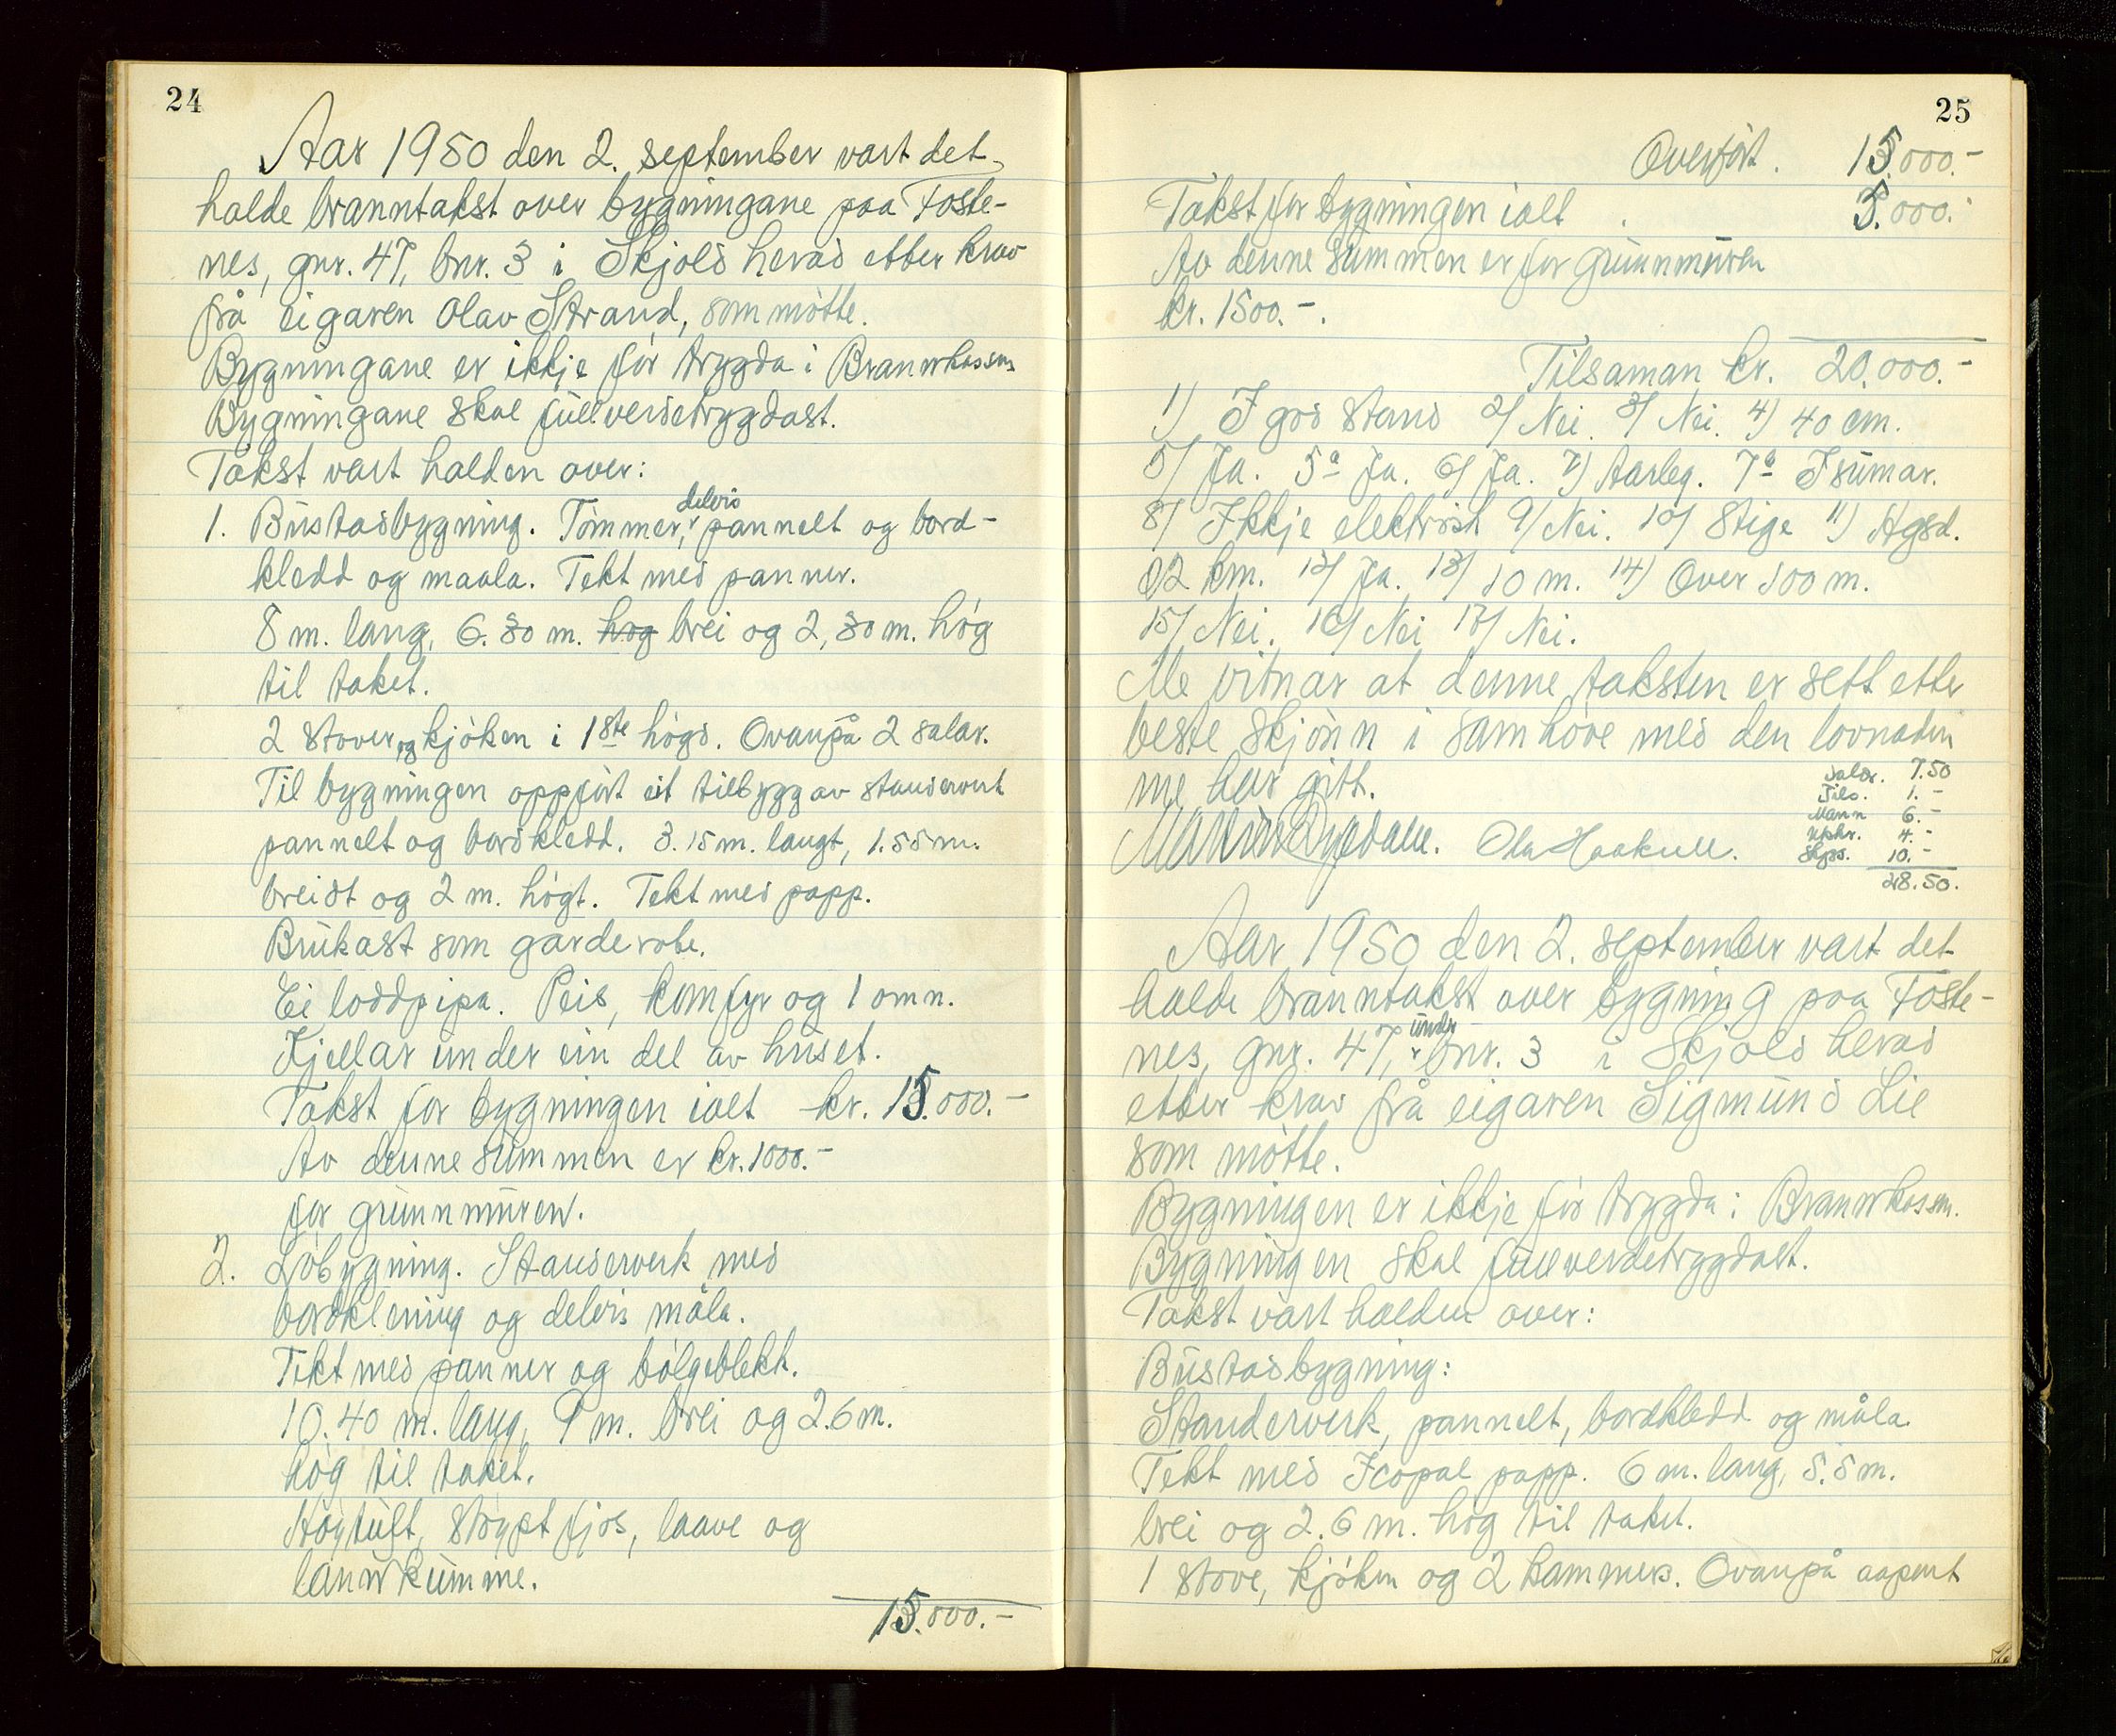 24
Aar 1950 den 2. september vart det
halde branntakst over bygningane paa Foste-
nes, gnr. 47, bnr. 3 i Skjold herad etter krav
frå eigaren Olav Strand, som møtte.
Bygningane er ikkje før trygda i Brannkassen
Bygningane skal fullverdetrygdast.
Takst vart halden over:
1. Bustadbygning. Tømmer, delvis pannelt og bord-
kledd og maala. Tekt med panner.
8 m. lang, 6.80 m. høg brei og 2,80 m. høg
til taket.
2 stover og kjøken i 1ste høgd. Ovanpå 2 salar.
Til bygningen oppført eit tilbygg av standerverk
pannelt og bordkledd. 3.15 m. langt, 1.55 m.
breidt og 2 m. høgt. Tekt med papp.
Brukast som garderobe.
Ei loddpipa. Peis, komfyr og 1 omn.
Kjellar under ein del av huset.
Takst for bygningen ialt kr. 15.000.-
Av denne summen er kr. 1000.-
for grunnmuren.
2. Løbygning. Standerverk med
bordklening og delvis måla.
Tekt med panner og bølgeblekk.
10.40 m. lang, 9 m. brei og 2.6 m.
høg til taket.
Høytuft, støypt fjøs, laave og
lannkumme.
15.000.-
25
Overført. 15.000.-
Takst for bygningen ialt . 5.000.-
Av denne summen er for grunnmuren
kr. 1500.-.
Tilsaman kr. 20.000.-
1) I god stand 2/ Nei. 3/ Nei. 4) 40 cm.
5/ Ja. 5a Ja. 6/ Ja. 7) Aarleg. 7b I sumar.
8/ Ikkje elektrisk 9/ Nei. 10/ Stige 11) Hgsd.
02 km. 12/ Ja. 13/ 10 m. 14) Over 100 m.
15/ Nei. 16/ Nei 17/ Nei.
Me vitnar at denne taksten er sett etter
beste skjønn i samhøve med den lovnaden
me har gitt.
Salær. 7.50
Tils. 1.-
Mann 6.-
Upkr. 4.-
Skyss. 10.-
28.50.
Ola Haakull.
Aar 1950 den 2. september vart det
halde branntakst over bygning paa Foste-
nes, gnr. 47, under bnr. 3 i Skjold herad
etter krav frå eigaren Sigmund Lie
som møtte.
Bygningen er ikkje før trygda i Brannkassen.
Bygningen skal fullverdetrygdast.
Takst vart halden over:
Bustadbygning:
Standerverk, pannelt, bordkledd og måla.
Tekt med Icopal papp. 6 m. lang, 5.5 m.
brei og 2.6 m. høg til taket.
1 stove, kjøken og 2 kammers. Ovanpå aapent